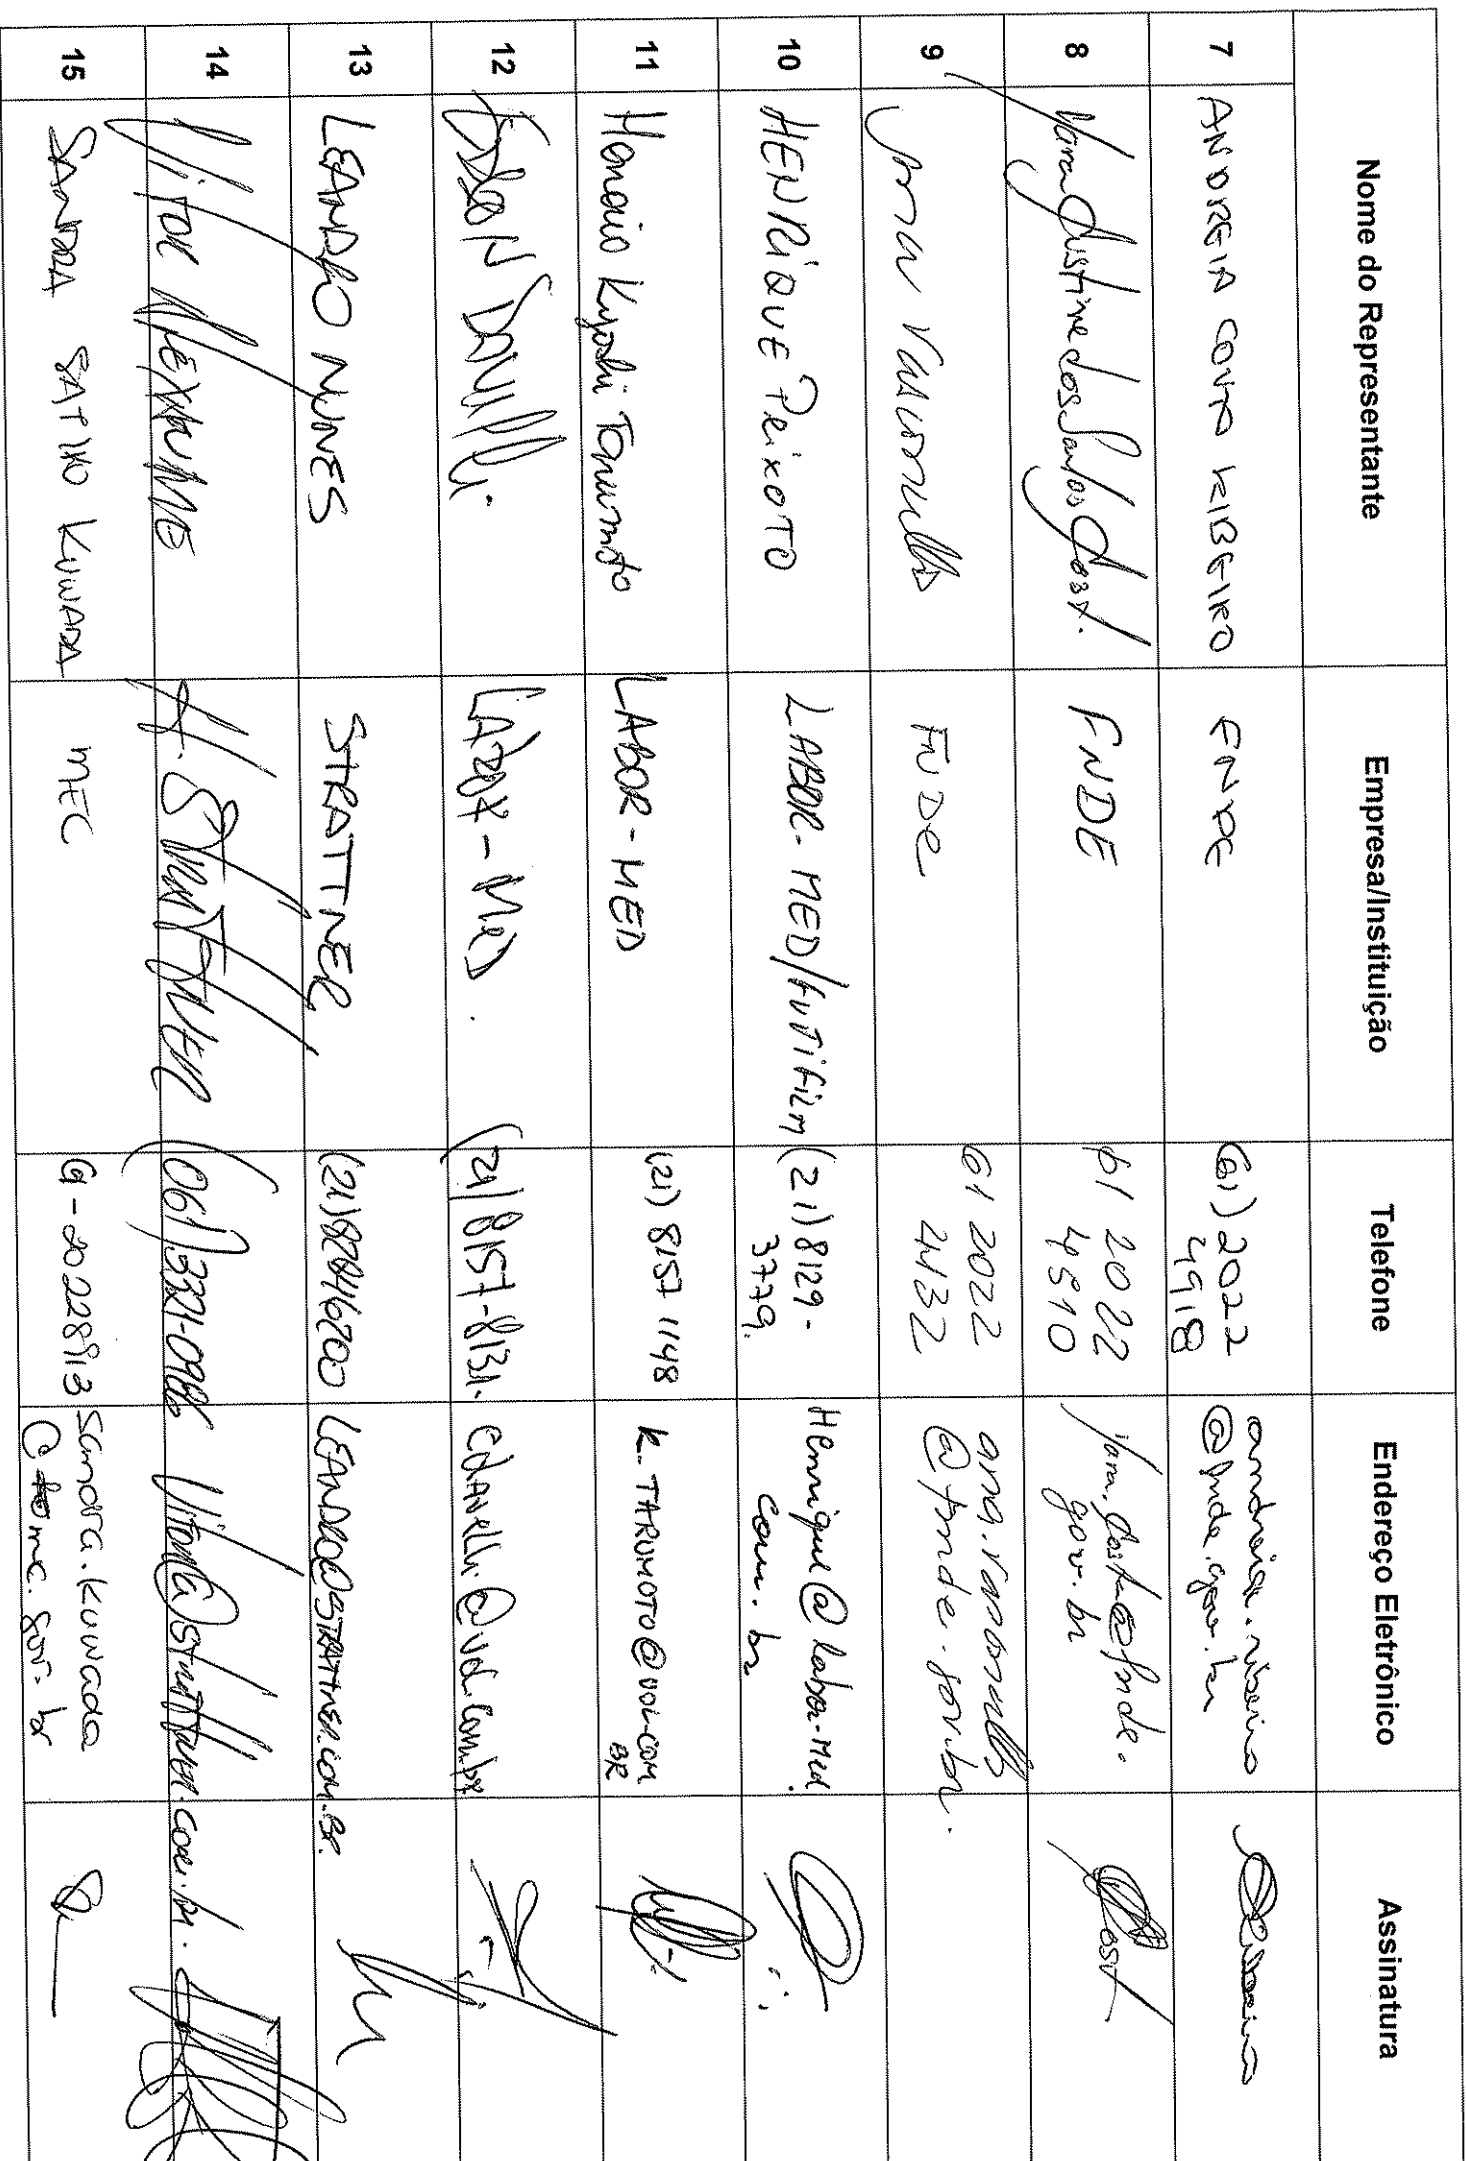 Nome do Representante Empresa/Instituição Telefone Endereço Eletrônico Assinatura
7 ANDREIA COUTO RIBEIRO FNDE (61) 2022 4918 andreia.ribeiro @fnde.gov.br
8 Yara Justine dos Santos Cost. FNDE 61 2022 4510 yara.costa@fnde. gov.br
9 Vasconcellos FNDE 61 2022 2432 ana.vasconcellos @fnde.gov.br.
10 HENRIQUE PeixOTO LABOR-MED/ (21) 8129- 3779. Henrique@labor-Med. com.br
11 Kiyoshi LABOR-MED (21) 8157 1148 K.TARUMOTO@UOL.COM BR
12 EDSON DAVELLI. LABOR-MED. (21) 8157-8131. edavelli@uol.com.br
13 LEANDRO NUNES STRATTNER (21) LEANDRO@STRATTNER.COM.BR.
14 VITOR ALEXANDRE H. STRATTNER (061) 3321-0986 @strattner.com.br.
15 SANDRA SATIKO KUWADA MEC 61-20228913 sandra.kuwada @ mec.gov.br